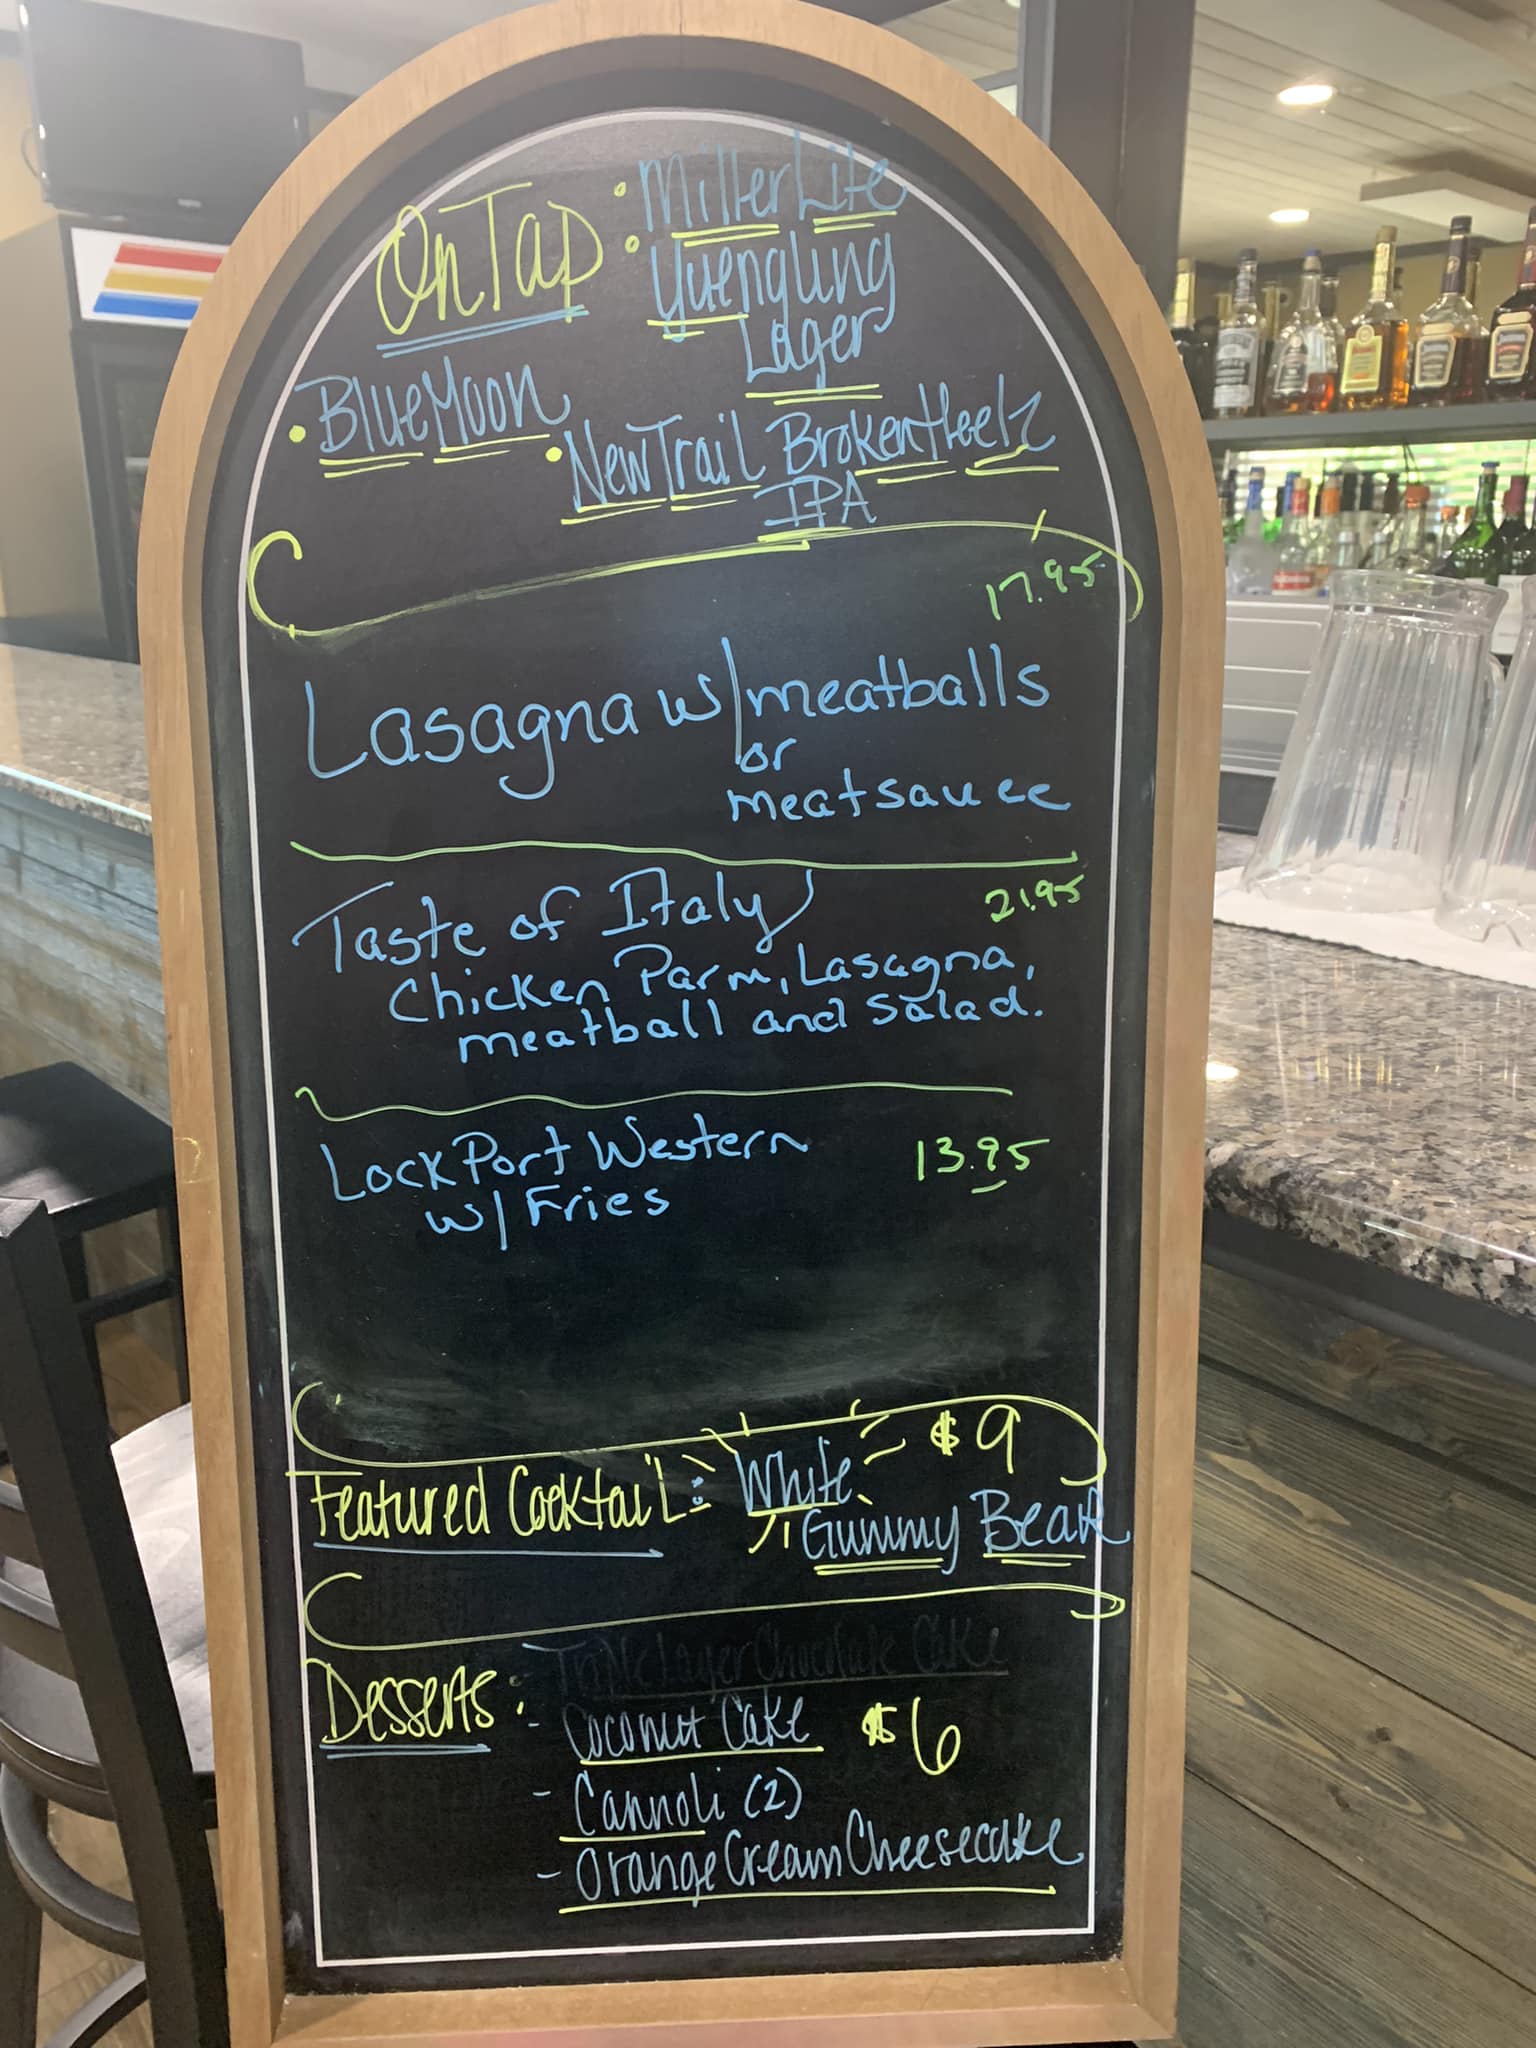 On Tap
• Miller Lite
• Yuengling
Lager
• Blue Moon
• New Trail Broken Heelz
IPA
17.95
Lasagna w/meatballs
or
meatsauce
Taste of Italy 21.95
Chicken Parm, Lasagna,
meatball and Salad.
LockPort Western 13.95
w/Fries
Featured Cocktail: White $9
Gummy Bear
Desserts:
- Triple Layer Chocolate Cake
- Coconut Cake $6
- Cannoli (2)
- Orange Cream Cheesecake